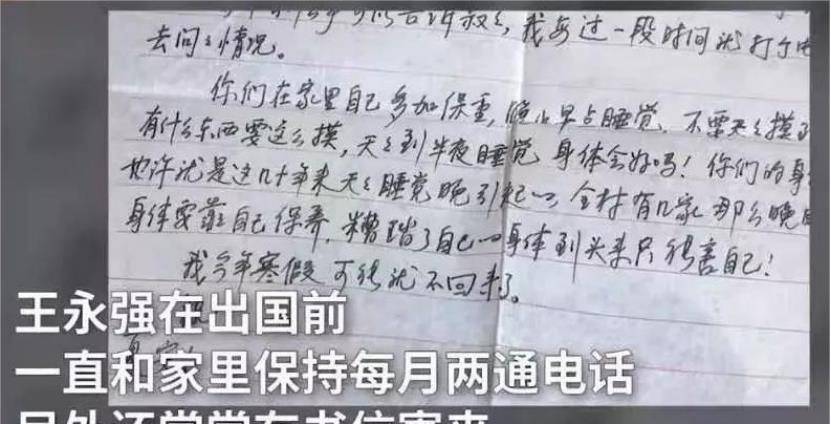 叔叔，我每过一段时间就打个电
去问问情况。
你们在家里自己多加保重，晚上早点睡觉，不要天天摸
有什么东西要这么摸，天天到半夜睡觉，身体会好吗！你们的身
也许就是这几十年来天天睡觉晚引起的，全村有几家那么晚
身体要靠自己保养，糟蹋了自己的身体到头来只能害自己！
我今年寒假可能就不回来了。
王永强在出国前
一直和家里保持每月两通电话
另外还常常有书信寄来